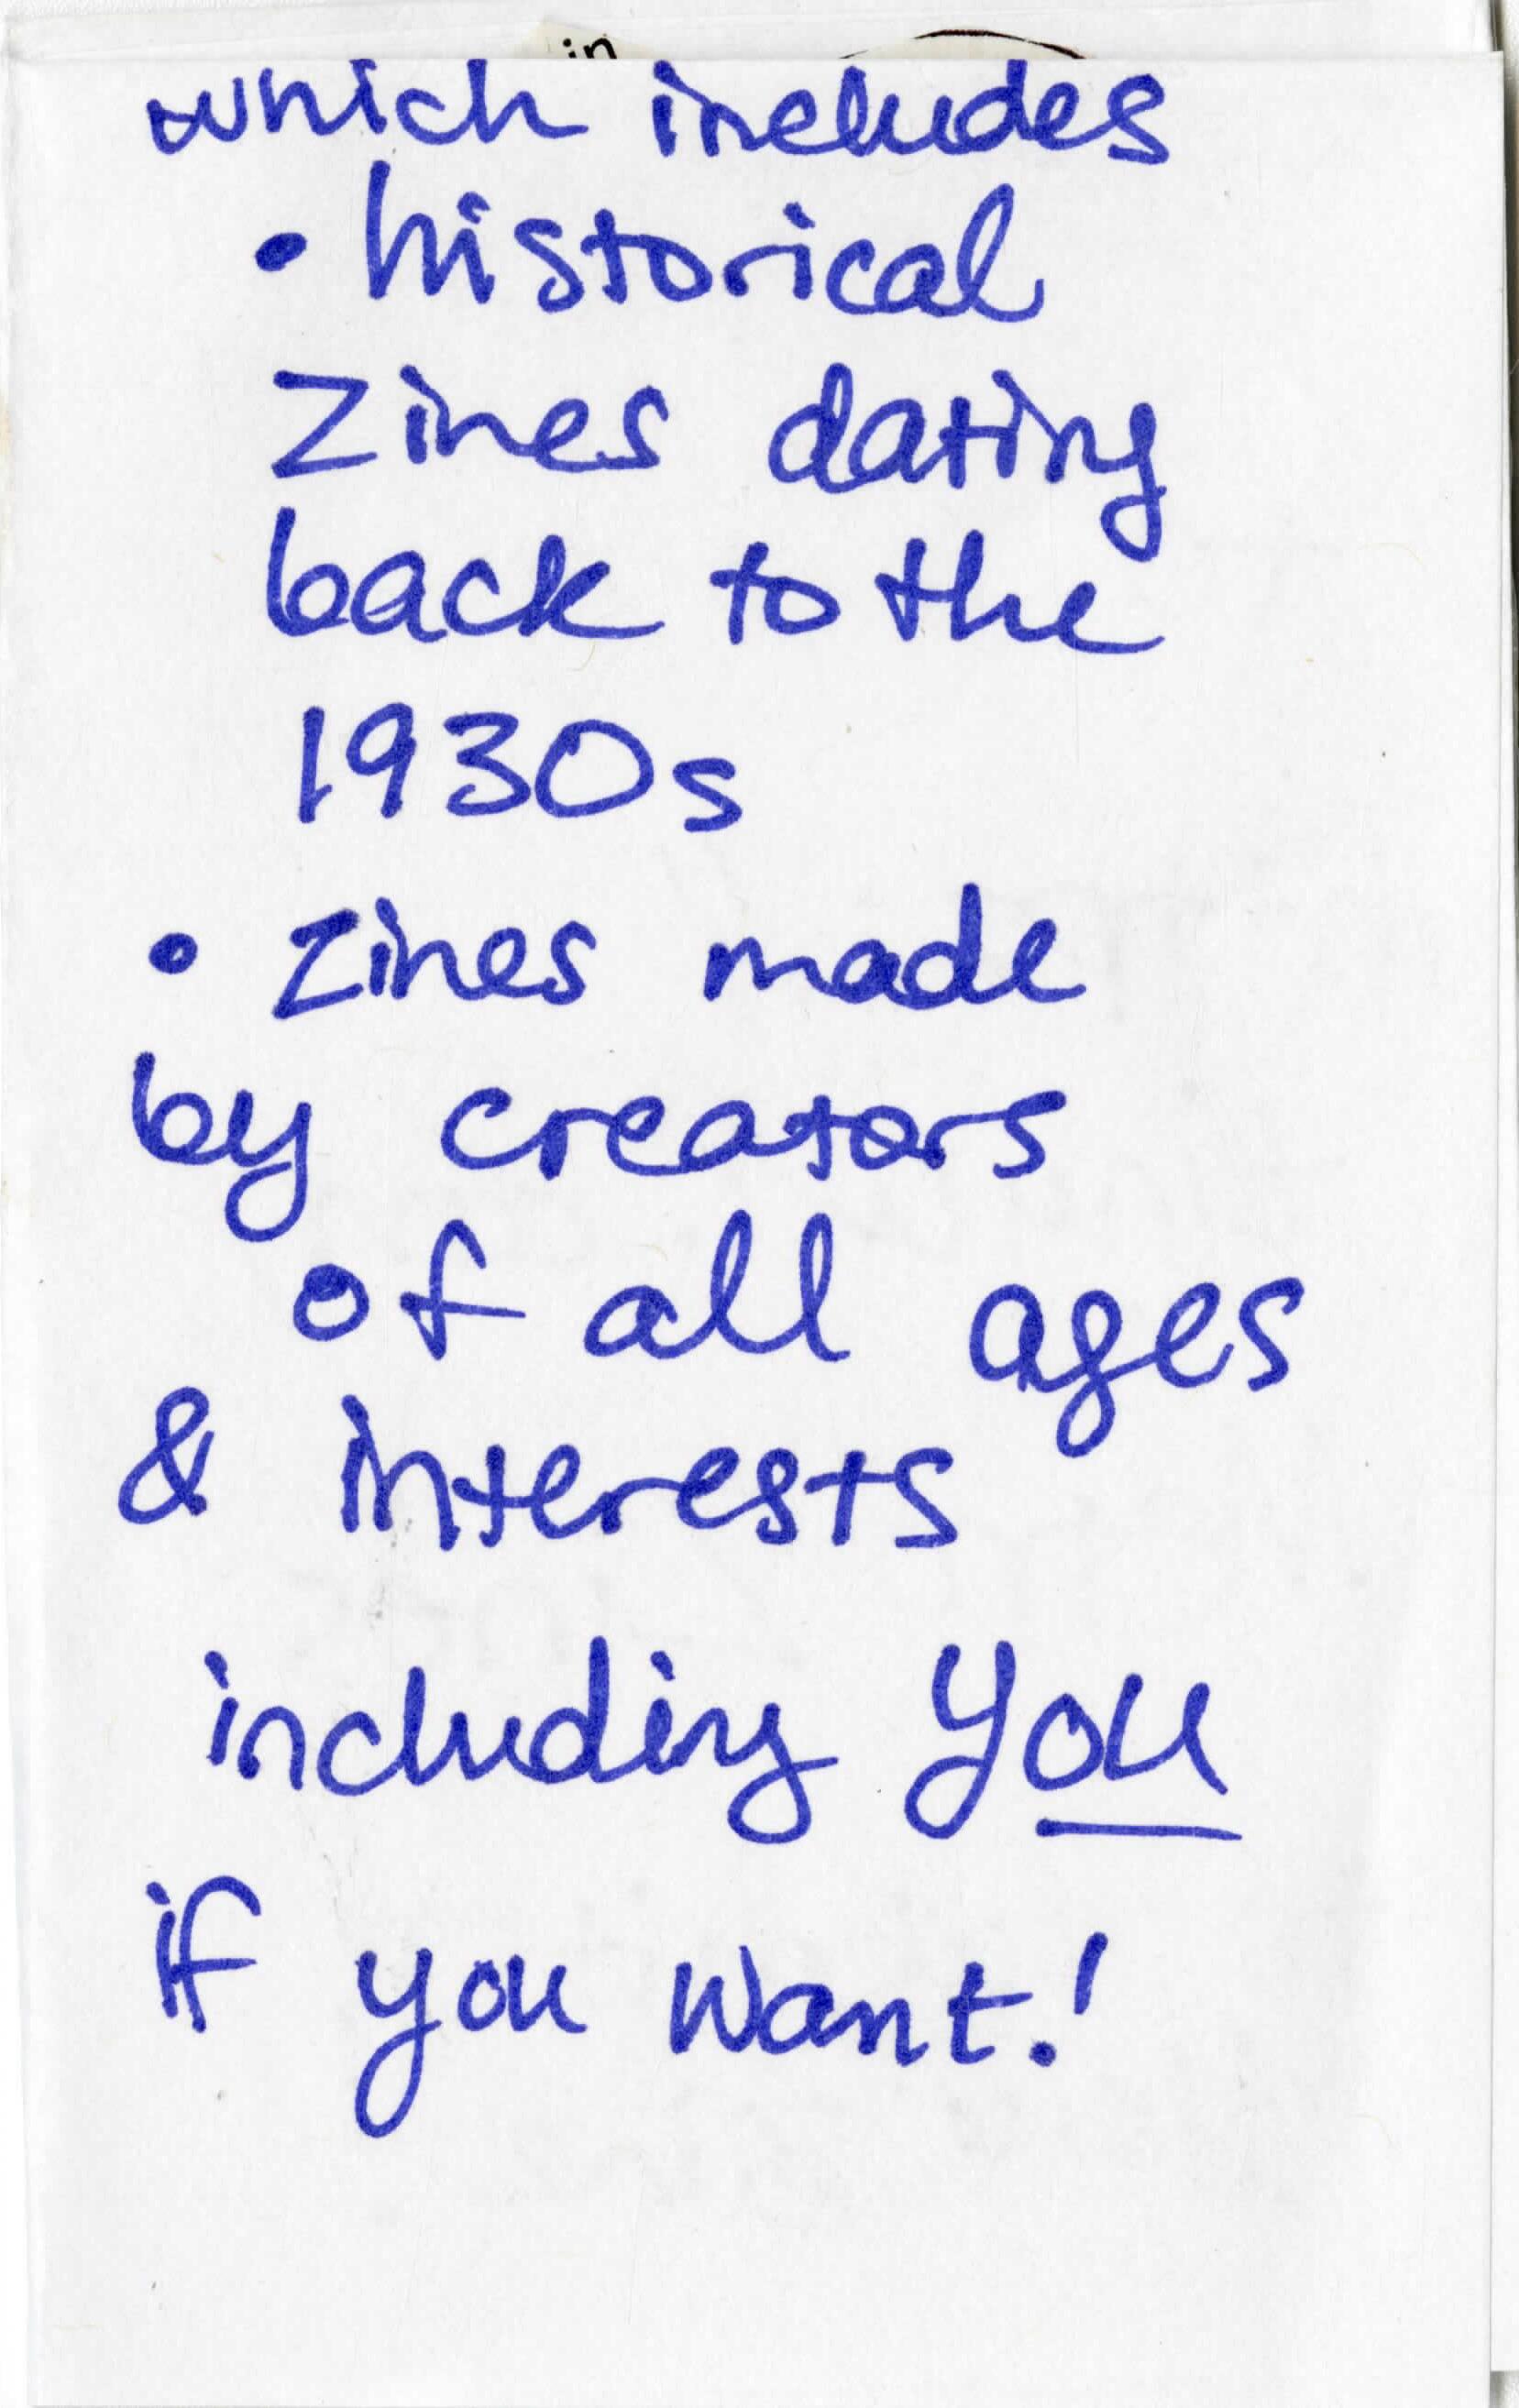 in
which includes
• historical
zines dating
back to the
1930s
• zines made
by creators
of all ages
& interests
including you
if you want!